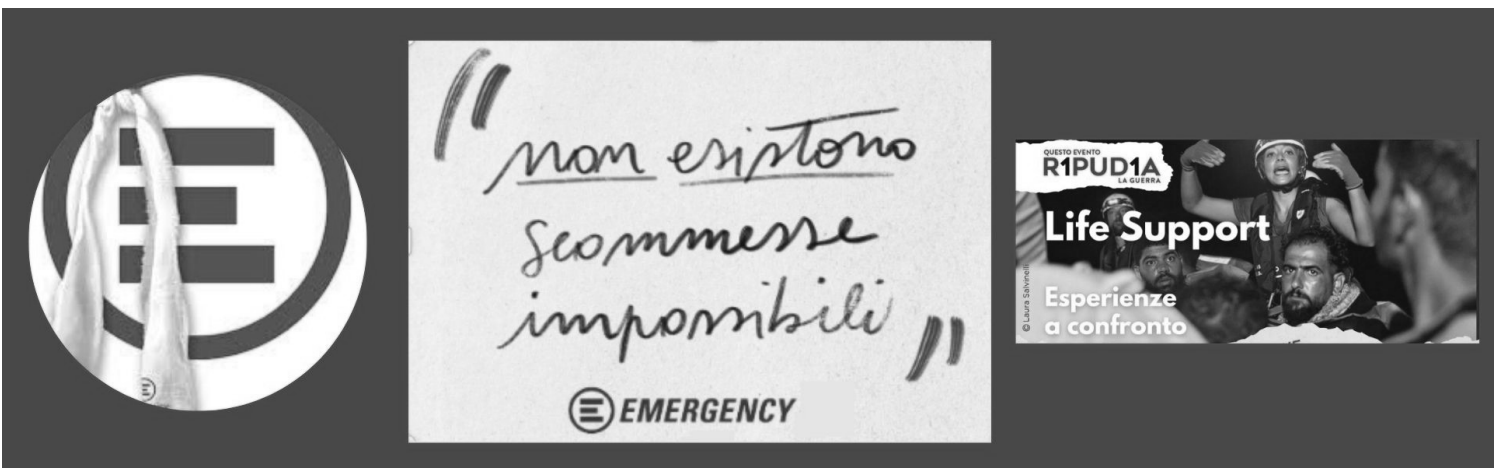 E
"non esistono
scommesse
impossibili"
E EMERGENCY
QUESTO EVENTO
R1PUD1A
LA GUERRA
Life Support
Esperienze
a confronto
© Laura Salvinelli